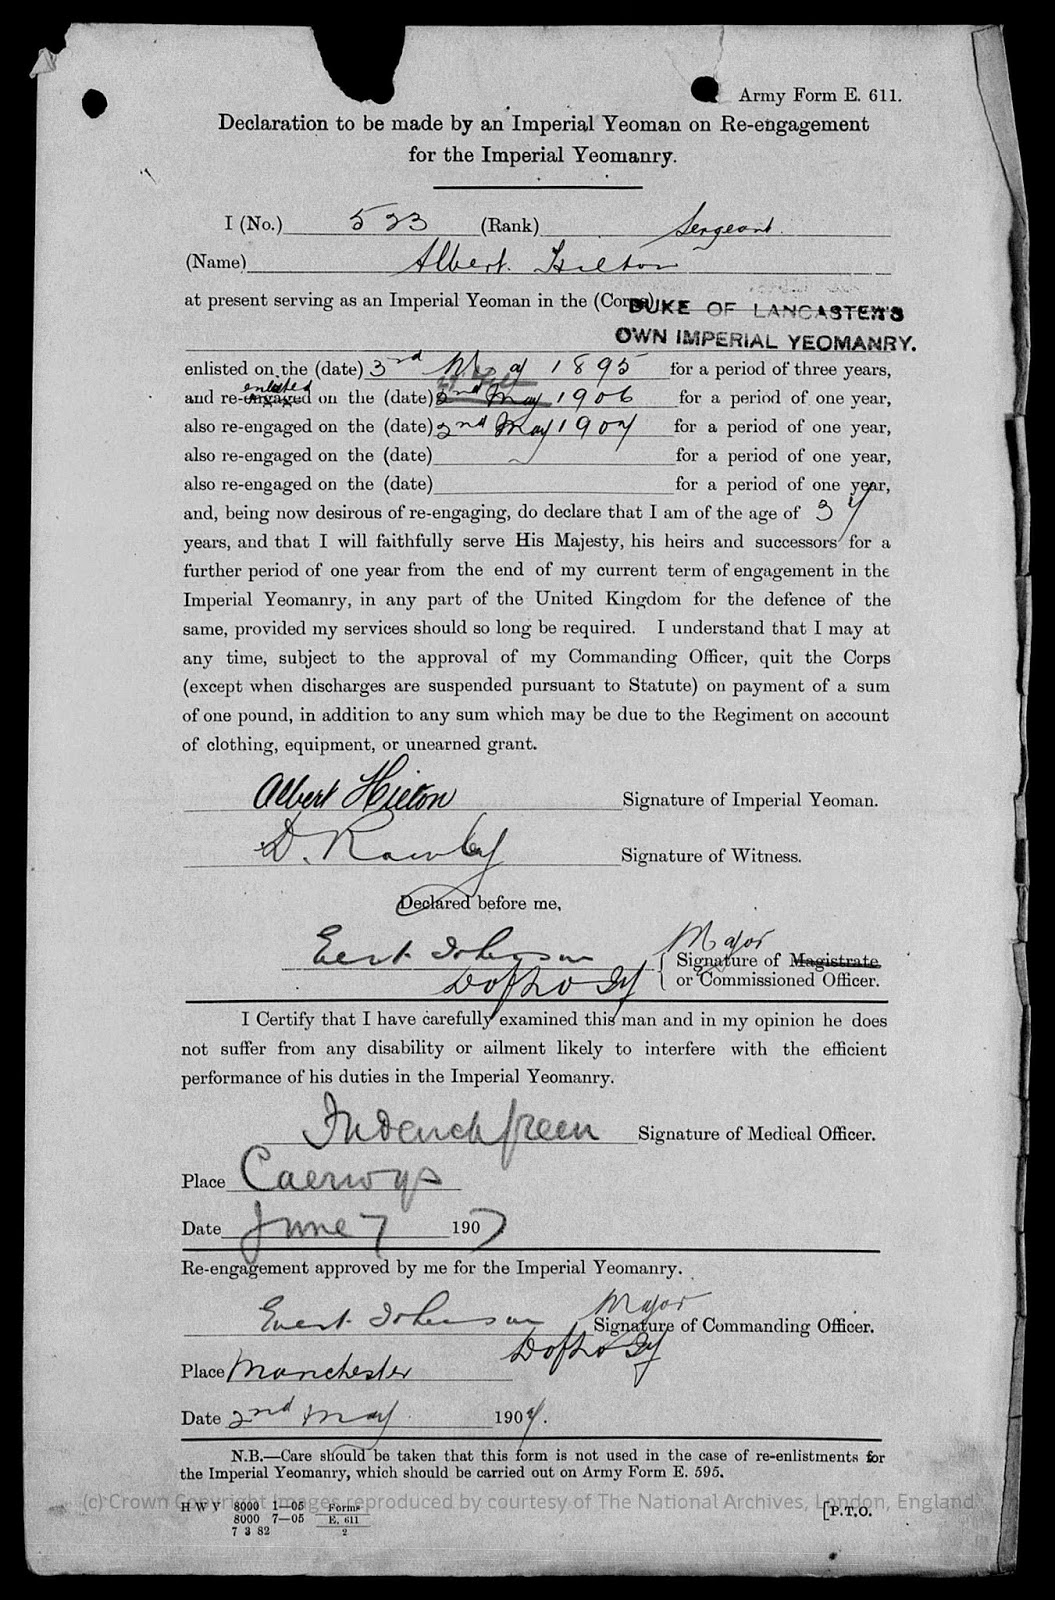 Army Form E. 611.
Declaration to be made by an Imperial Yeoman on Re-engagement
for the Imperial Yeomanry.
I (No.) 523 (Rank) Sergeant.
(Name) Albert Hilton
at present serving as an Imperial Yeoman in the (Corps)
DUKE OF LANCASTER'S
OWN IMPERIAL YEOMANRY.
enlisted on the (date) 3rd May 1895 for a period of three years,
enlisted
and re-engaged on the (date) 2nd May 1906 for a period of one year,
also re-engaged on the (date) 2nd May 1907 for a period of one year,
also re-engaged on the (date) for a period of one year,
also re-engaged on the (date) for a period of one year,
and, being now desirous of re-engaging, do declare that I am of the age of 37
years, and that I will faithfully serve His Majesty, his heirs and successors for a
further period of one year from the end of my current term of engagement in the
Imperial Yeomanry, in any part of the United Kingdom for the defence of the
same, provided my services should so long be required. I understand that I may at
any time, subject to the approval of my Commanding Officer, quit the Corps
(except when discharges are suspended pursuant to Statute) on payment of a sum
of one pound, in addition to any sum which may be due to the Regiment on account
of clothing, equipment, or unearned grant.
Albert Hilton Signature of Imperial Yeoman.
D. Rawley Signature of Witness.
Declared before me,
Johnson Major
Signature of Magistrate
DofLO IY or Commissioned Officer.
I Certify that I have carefully examined this man and in my opinion he does
not suffer from any disability or ailment likely to interfere with the efficient
performance of his duties in the Imperial Yeomanry.
Signature of Medical Officer.
Place Caerwys
Date June 7 1907
Re-engagement approved by me for the Imperial Yeomanry.
Johnson Major
Signature of Commanding Officer.
DofLO IY
Place Manchester
Date 2nd May 1907.
N.B.—Care should be taken that this form is not used in the case of re-enlistments for
the Imperial Yeomanry, which should be carried out on Army Form E. 595.
(c) Crown Copyright Images reproduced by courtesy of The National Archives, London, England.
H W V 8000 1—05 Forms
8000 7—05 E. 611
7 3 82 2
[P.T.O.